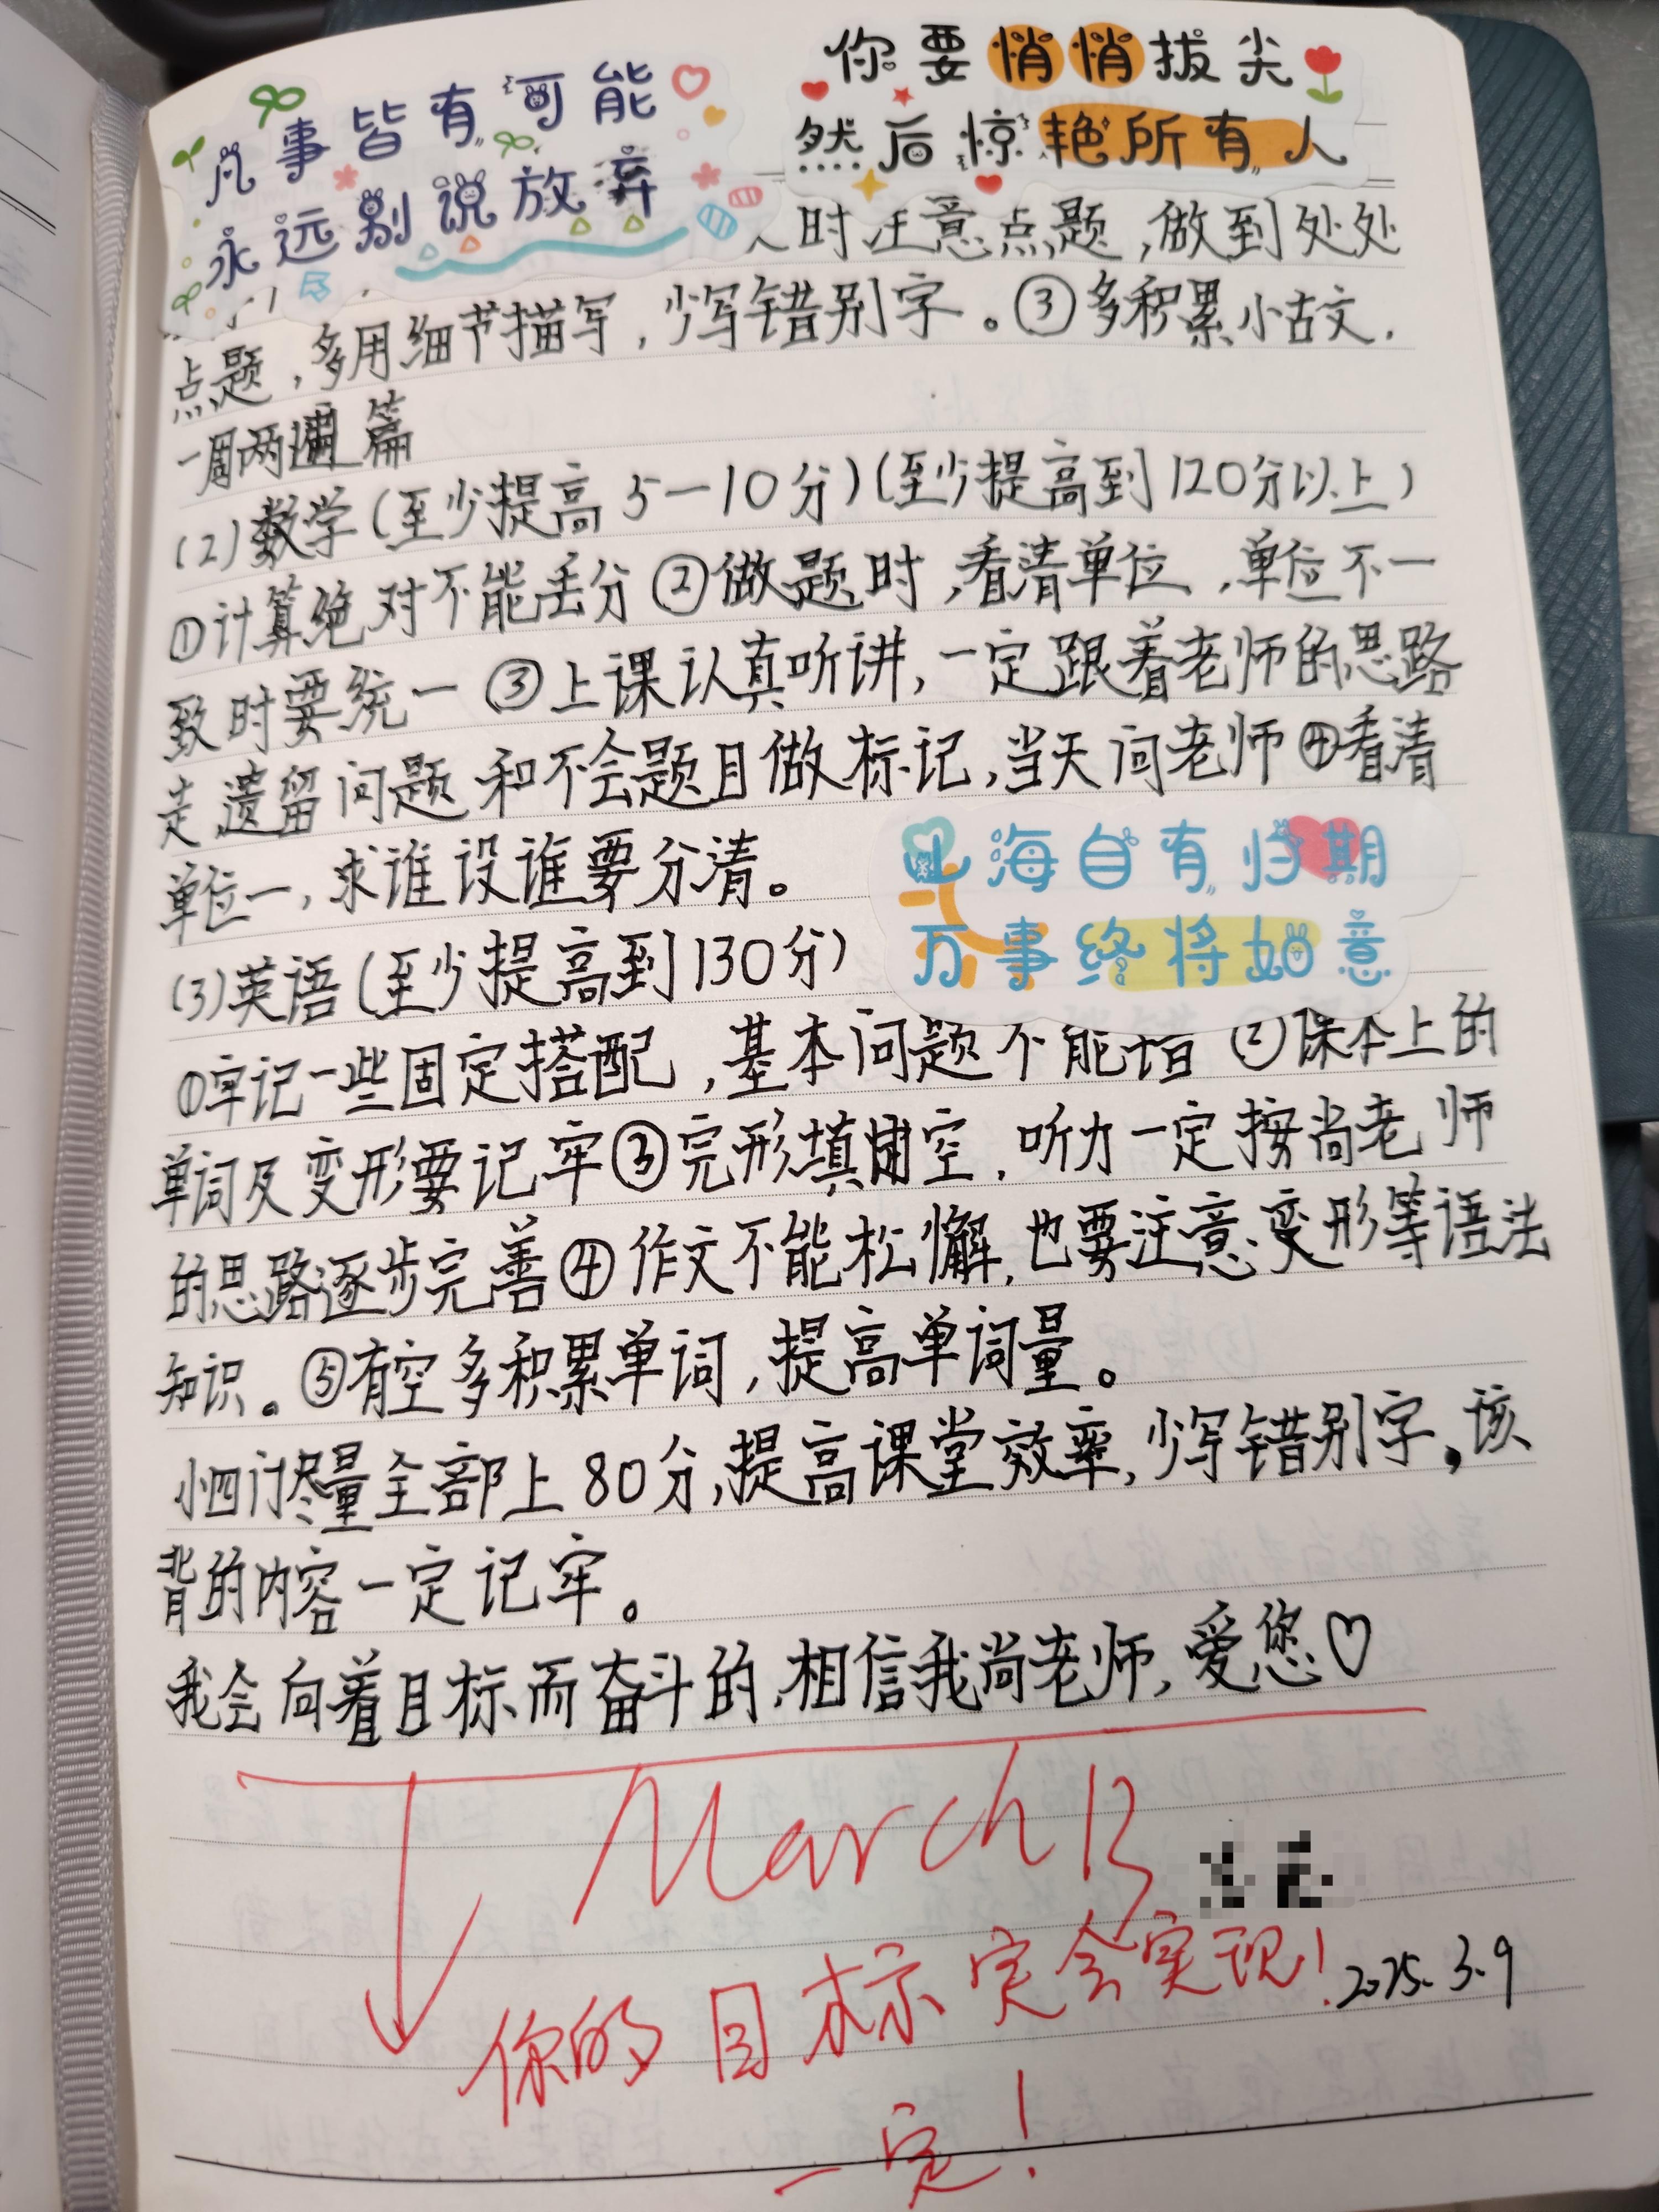 凡事皆有可能
永远别说放弃
你要悄悄拔尖
然后惊艳所有人
时注意点题,做到处处
点题,多用细节描写,少写错别字。③多积累小古文.
一周两篇
(2)数学(至少提高5一10分)(至少提高到120分以上)
①计算绝对不能丢分②做题时,看清单位,单位不一
致时要统一③上课认真听讲,一定跟着老师的思路
走遗留问题和不会题目做标记,当天问老师④看清
单位一,求谁设谁要分清。
山海自有归期
万事终将如意
(3)英语(至少提高到130分)
①牢记一些固定搭配,基本问题不能错②课本上的
单词及变形要记牢③完形填空,听力一定按尚老师
的思路逐步完善④作文不能松懈,也要注意变形等语法
知识。⑤有空多积累单词,提高单词量。
小四门尽量全部上80分,提高课堂效率,少写错别字。该
背的内容一定记牢。
我会向着目标而奋斗的,相信我尚老师,爱您♡
March 13
你的目标定会实现!
2025.3.9
一定!